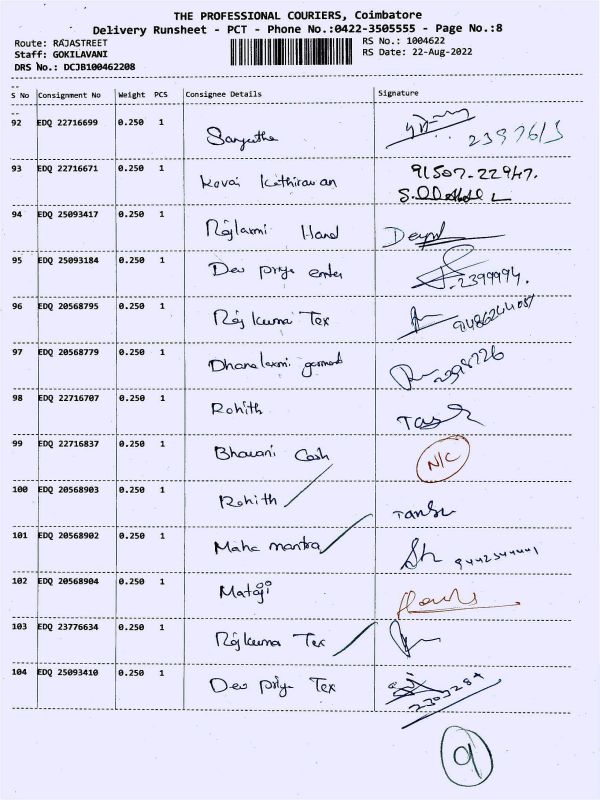 THE PROFESSIONAL COURIERS, Coimbatore
Delivery Runsheet - PCT - Phone No.:0422-3505555 - Page No.:8
Route: RAJASTREET
RS No.: 1004622
Staff: GOKILAVANI
RS Date: 22-Aug-2022
DRS No.: DCJB100462208
S No Consignment No Weight PCS Consignee Details Signature
92 EDQ 22716699 0.250 1 2397613
93 EDQ 22716671 0.250 1 Kovai Kathiravan 91507-22947.
94 EDQ 25093417 0.250 1 Rajlaxmi Hand
95 EDQ 25093184 0.250 1 Dev priya enter 2399994.
96 EDQ 20568795 0.250 1 Raj Kumar Tex
97 EDQ 20568779 0.250 1 Dhanalaxmi garments
98 EDQ 22716707 0.250 1 Rohith
99 EDQ 22716837 0.250 1 Bhavani Cash N/C
100 EDQ 20568903 0.250 1 Rohith
101 EDQ 20568902 0.250 1 Maha mantra
102 EDQ 20568904 0.250 1 Mataji
103 EDQ 23776634 0.250 1 Raj Kumar Tex
104 EDQ 25093410 0.250 1 Dev priya Tex
9